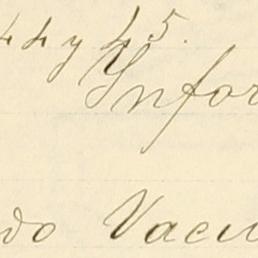 44 y 45.
Infor
do Vacu